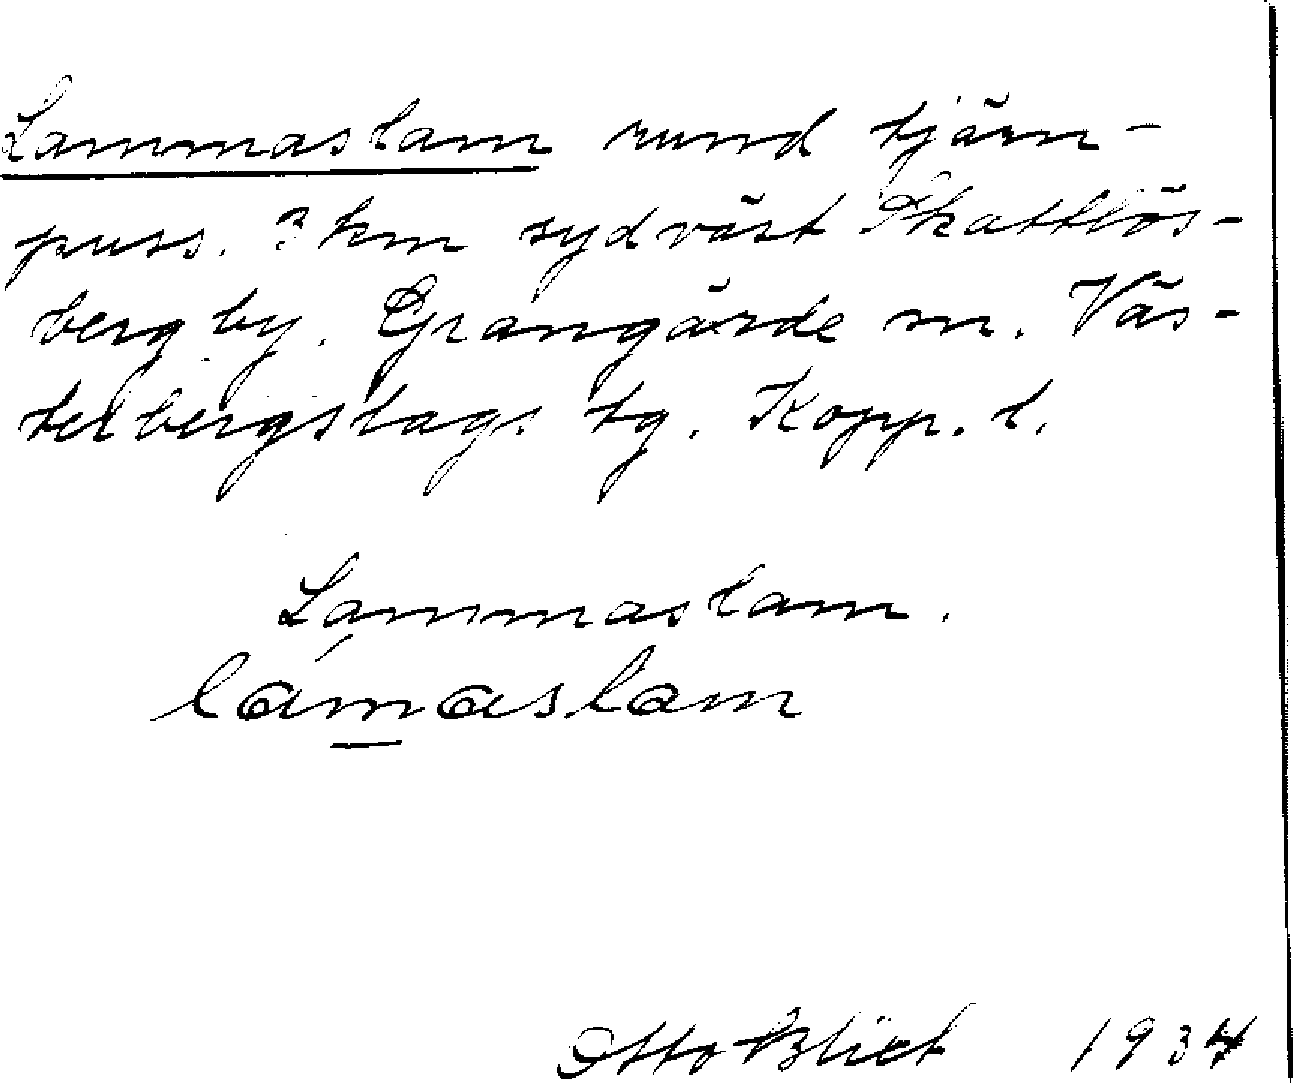 Lammaslam rund tjärn-
puss. 3 km sydväst Skattlös-
berg by. Grangärde sn. Väs-
terbergslags tg. Kopp. l.
Lammaslam.
lámaslam
Otto Blixt 1934